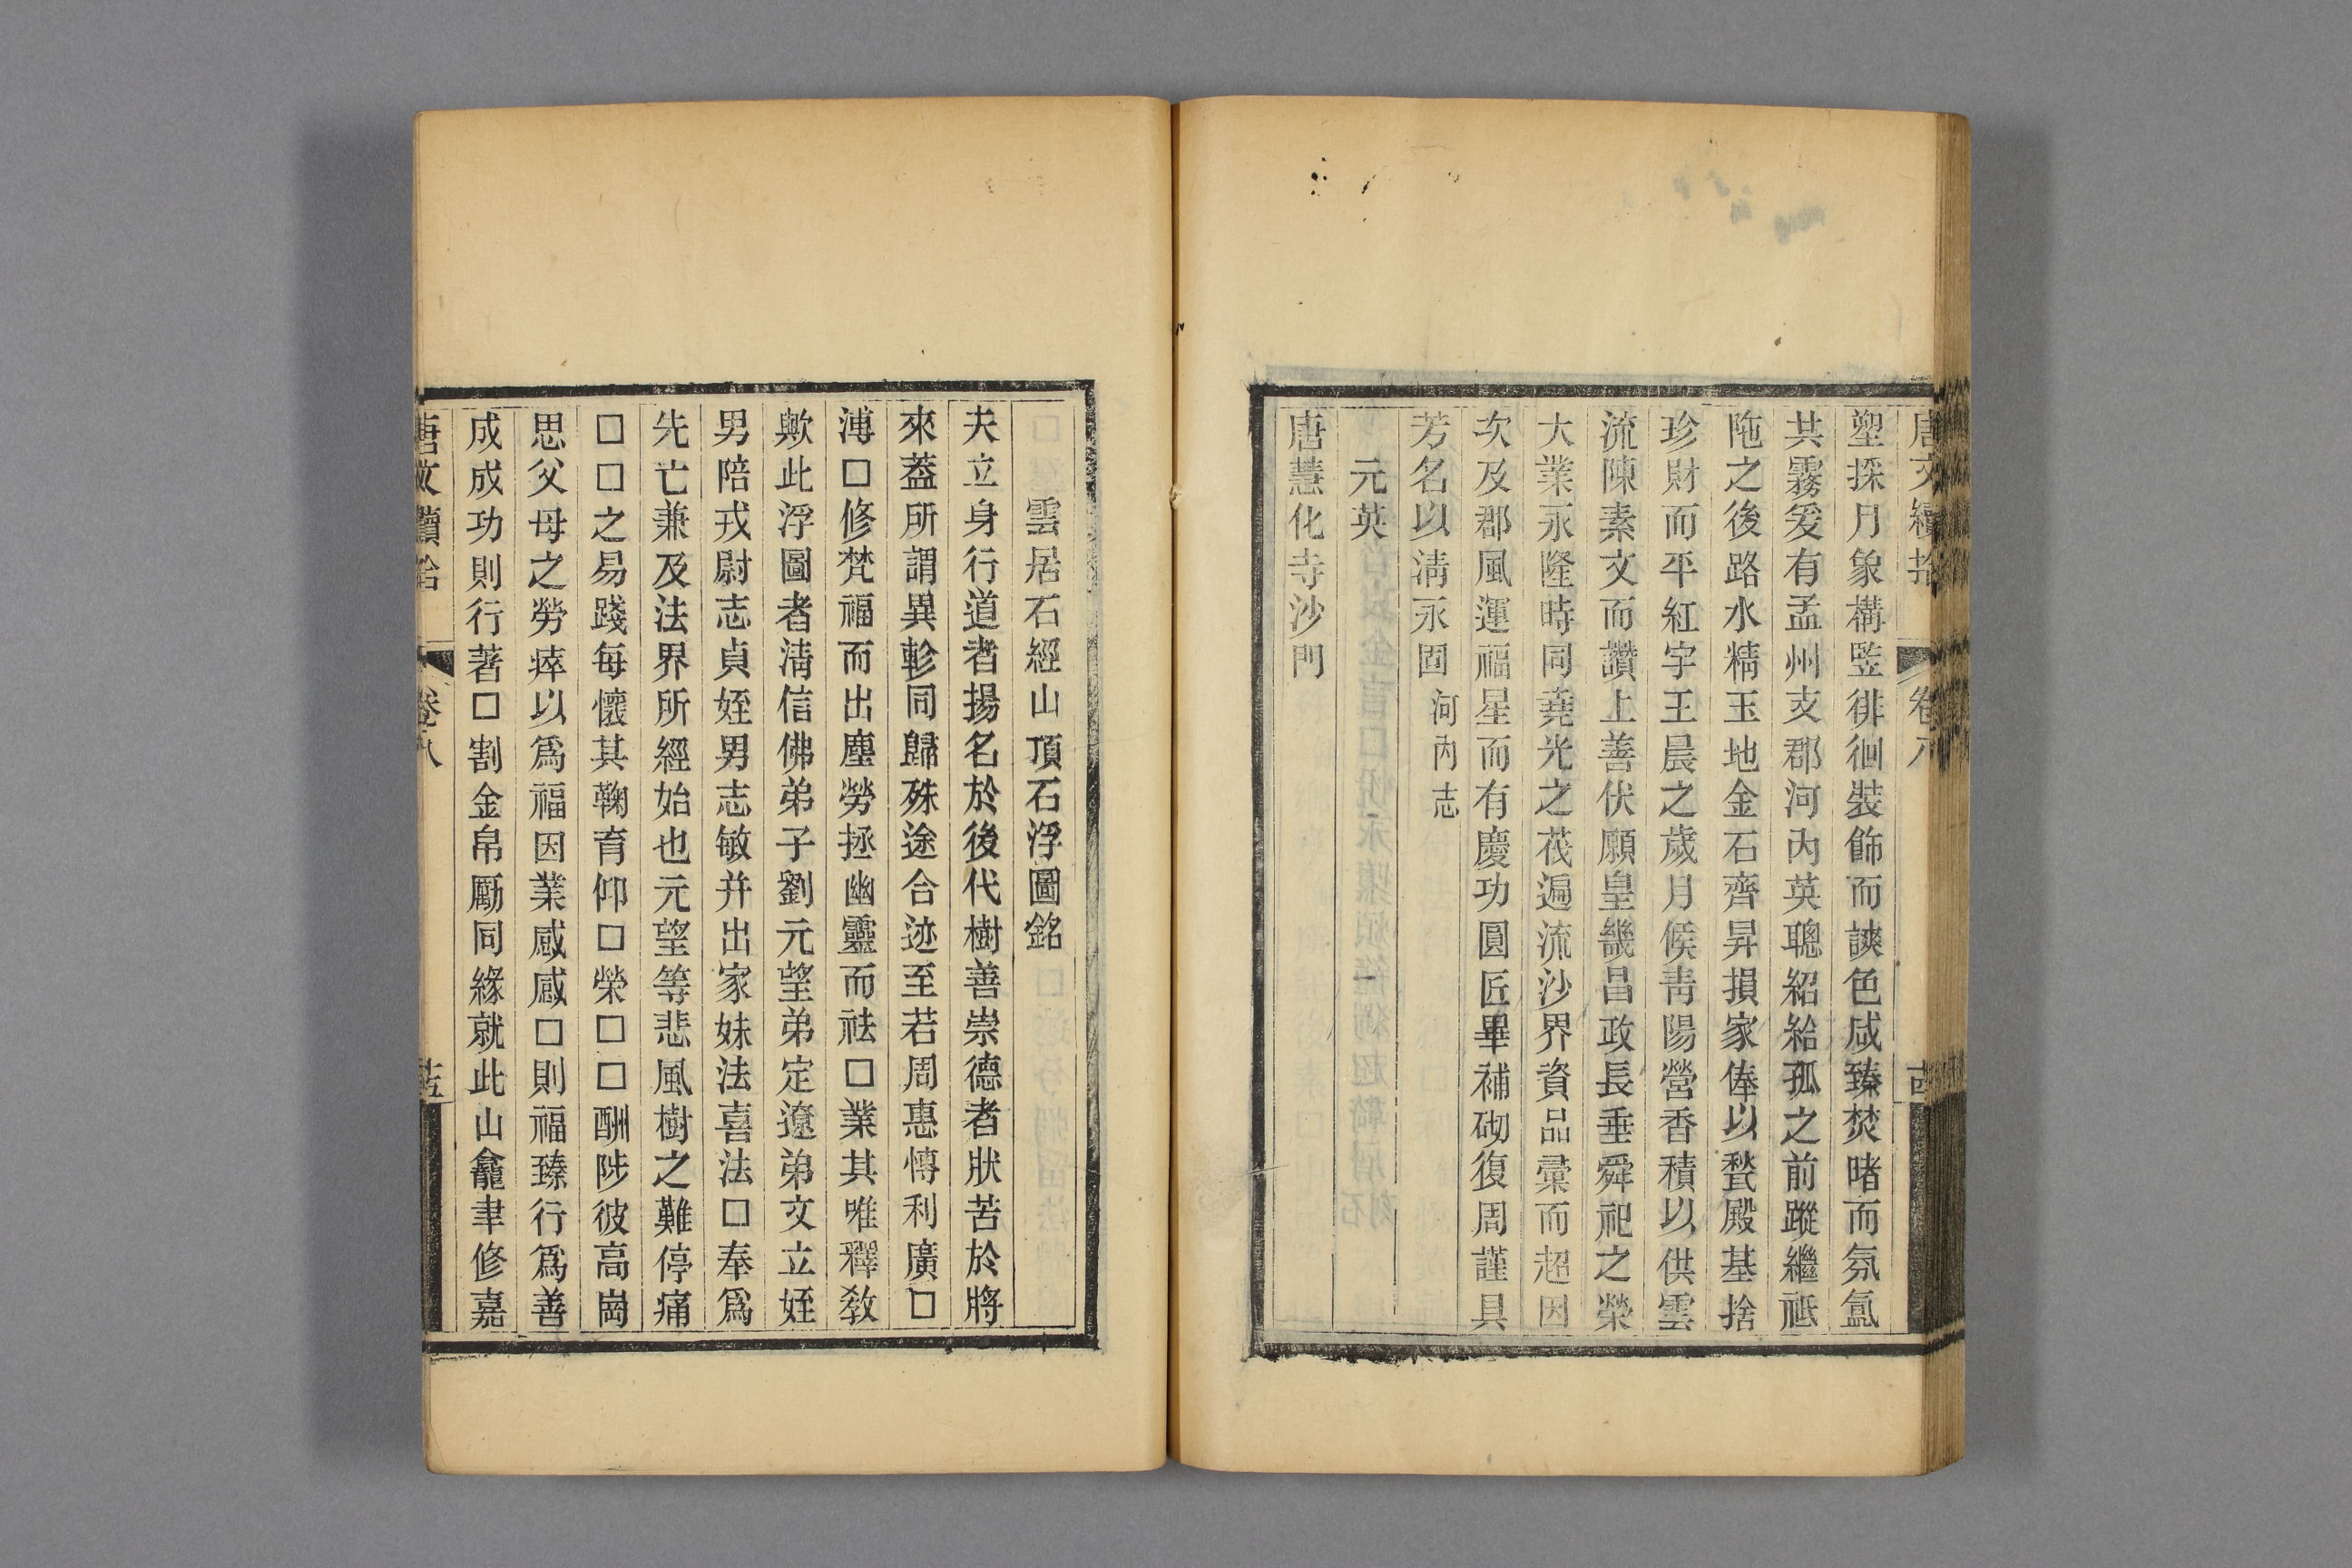 唐文續拾 卷八
塑採月象構竪徘徊裝飾而談色咸臻焚睹而氛氲
共霧爰有孟州支郡河內英聰紹給孤之前蹤繼祗
陁之後路水精玉地金石齊昇損家俸以甃殿基捨
珍財而平紅宇王晨之歲月候靑陽營香積以供雲
流陳素文而讚上善伏願皇畿昌政長垂舜祀之榮
大業永隆時同堯光之茷遍流沙界資品彙而超因
次及郡風運福星而有慶功圓匠畢補砌復周謹具
芳名以淸永固 河內志
元英
唐慧化寺沙門
雲居石經山頂石浮圖銘
夫立身行道者揚名於後代樹善崇德者狀苦於將
來蓋所謂異軫同歸殊途合迹至若周惠慱利廣□
溥□修梵福而出塵勞拯幽靈而祛□業其唯釋敎
歟此浮圖者淸信佛弟子劉元望弟定遼弟文立姪
男陪戎尉志貞姪男志敏并出家妹法喜法□奉爲
先亡兼及法界所經始也元望等悲風樹之難停痛
□□之易踐每懷其鞠育仰□榮□□酬陟彼高崗
思父母之勞瘁以爲福因業感感□則福臻行爲善
成成功則行著□割金帛勵同緣就此山龕聿修嘉
唐文續拾 卷八